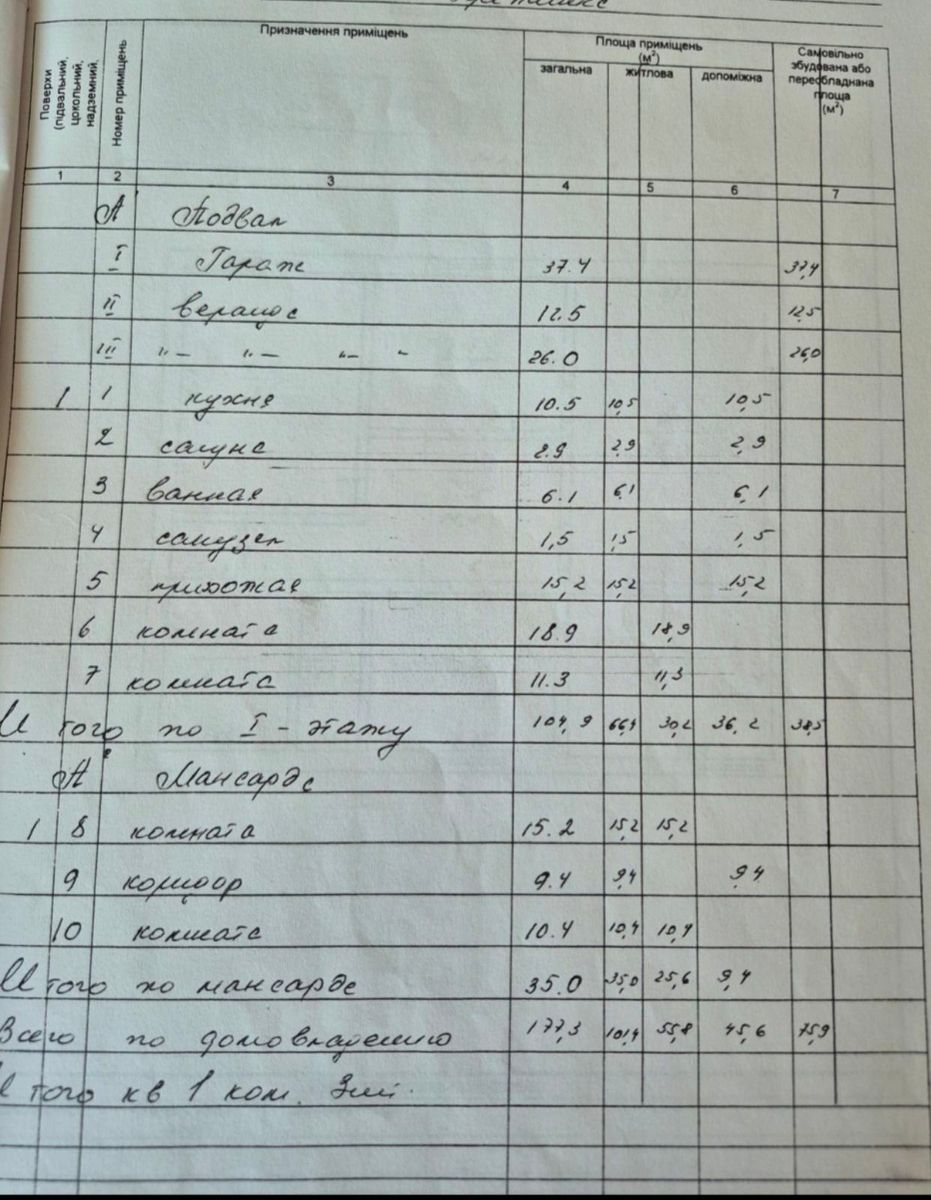 Поверхи (підвальний, цокольний, надземний,
Номер приміщень
Призначення приміщень
Площа приміщень (м²)
загальна житлова допоміжна
Самовільно збудована або переобладнана площа (м²)
1 2 3 4 5 6 7
А Подвал
I Гараж 37.4 37,4
II веранда 12.5 12,5
III "— "— "— " 26.0 26,0
1 1 кухня 10.5 10,5 10,5
2 2.9 2,9 2,9
3 ванная 6.1 6,1 6,1
4 санузел 1,5 1,5 1,5
5 прихожая 15,2 15,2 15,2
6 комната 18.9 18,9
7 комната 11.3 11,3
Итого по I - этажу 104,9 66,4 30,2 36,2 38,5
А Мансарда
1 8 комната 15.2 15,2 15,2
9 коридор 9.4 9,4 9,4
10 комната 10.4 10,4 10,4
Итого по мансарде 35.0 35,0 25,6 9,4
Всего по домовладению 177,3 101,4 55,8 45,6 75,9
Итого кв 1 ком.